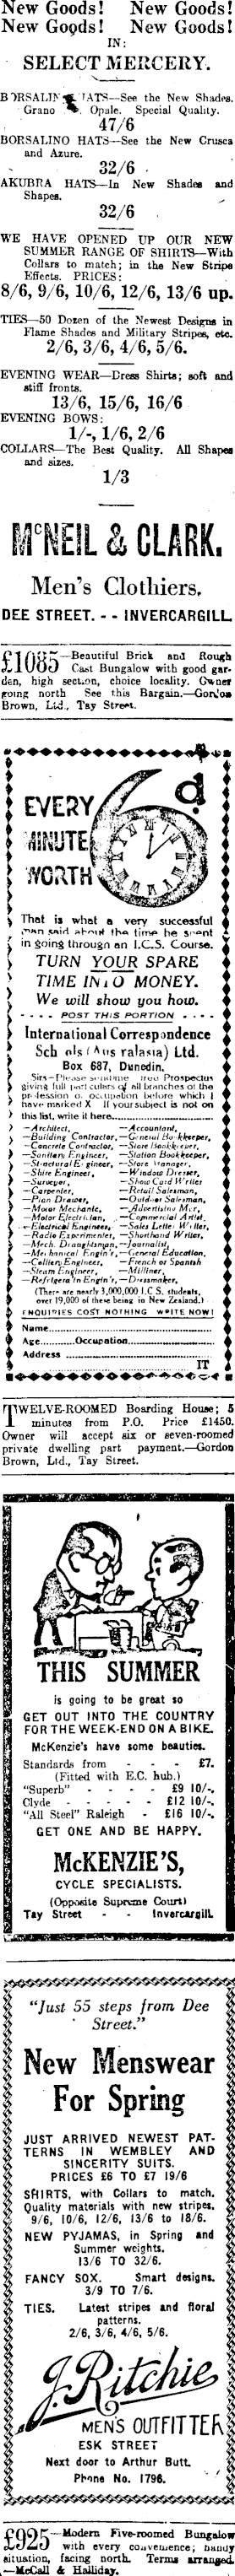 New Goods! New Goods!
New Goods! New Goods!
IN:
SELECT MERCERY.
HATS—See the New Shades.
Grano Opale. Special Quality.
47/6
BORSALINO HATS—See the New Crusca
and Azure.
32/6
AKUBRA HATS—In New Shades and
Shapes.
32/6
WE HAVE OPENED UP OUR NEW
SUMMER RANGE OF SHIRTS—With
Collars to match; in the New Stripe
Effects. PRICES:
8/6, 9/6, 10/6, 12/6, 13/6 up.
TIES—50 Dozen of the Newest Designs in
Flame Shades and Military Stripes, etc.
2/6, 3/6, 4/6, 5/6.
EVENING WEAR—Dress Shirts; soft and
stiff fronts.
13/6, 15/6, 16/6
EVENING BOWS:
1/-, 1/6, 2/6
COLLARS—The Best Quality. All Shapes
and sizes.
1/3
McNEIL & CLARK,
Men's Clothiers,
DEE STREET. - - INVERCARGILL
£1085—Beautiful Brick and Rough
Cast Bungalow with good gar-
den, high section, choice locality. Owner
going north See this Bargain.—Gordon
Brown, Ltd., Tay Street.
EVERY
MINUTE
WORTH
6d
That is what a very successful
man said about the time he spent
in going through an I.C.S. Course.
TURN YOUR SPARE
TIME INTO MONEY.
We will show you how.
- - - - POST THIS PORTION - - - -
International Correspondence
Schools (Australasia) Ltd.
Box 687, Dunedin.
Sirs—Please send me free Prospectus
giving full particulars of all branches of the
profession or occupation before which I
have marked X If your subject is not on
this list, write it here
—Architect, —Accountant,
—Building Contractor, —General Bookkeeper,
—Concrete Contractor, —Store Bookkeeper,
—Sanitary Engineer, —Station Bookkeeper,
—Structural Engineer, —Store Manager,
—Shire Engineer, —Window Dresser,
—Surveyor, —Show Card Writer
—Carpenter, —Retail Salesman,
—Plan Drawer, —Outdoor Salesman,
—Motor Mechanic, —Advertising Mgr,
—Motor Electrician, —Commercial Artist
—Electrical Engineer, —Sales Letter Writer,
—Radio Experimenter, —Shorthand Writer,
—Mech. Draughtsman, —Journalist,
—Mechanical Engin'r, —General Education,
—Colliery Engineer, —French or Spanish
—Steam Engineer, —Milliner,
—Refrigeratn Engin'r, —Dressmaker,
(There are nearly 3,000,000 I.C.S. students,
over 19,000 of these being in New Zealand.)
ENQUIRIES COST NOTHING WRITE NOW!
Name
Age Occupation
Address
IT
TWELVE-ROOMED Boarding House; 5
minutes from P.O. Price £1450.
Owner will accept six or seven-roomed
private dwelling part payment.—Gordon
Brown, Ltd., Tay Street.
THIS SUMMER
is going to be great so
GET OUT INTO THE COUNTRY
FOR THE WEEK-END ON A BIKE.
McKenzie's have some beauties.
Standards from - - - £7.
(Fitted with E.C. hub.)
"Superb" - - - - £9 10/-.
Clyde - - - - - £12 10/-.
"All Steel" Raleigh - £16 10/-.
GET ONE AND BE HAPPY.
McKENZIE'S,
CYCLE SPECIALISTS.
(Opposite Supreme Court)
Tay Street - - Invercargill.
"Just 55 steps from Dee
Street."
New Menswear
For Spring
JUST ARRIVED NEWEST PAT-
TERNS IN WEMBLEY AND
SINCERITY SUITS.
PRICES £6 TO £7 19/6
SHIRTS, with Collars to match.
Quality materials with new stripes.
9/6, 10/6, 12/6, 13/6 to 18/6.
NEW PYJAMAS, in Spring and
Summer weights.
13/6 TO 32/6.
FANCY SOX. Smart designs.
3/9 TO 7/6.
TIES. Latest stripes and floral
patterns.
2/6, 3/6, 4/6, 5/6.
J. Ritchie
MEN'S OUTFITTER
ESK STREET
Next door to Arthur Butt.
Phone No. 1796.
£925—Modern Five-roomed Bungalow
with every convenience; handy
situation, facing north. Terms arranged.
—McCall & Halliday.